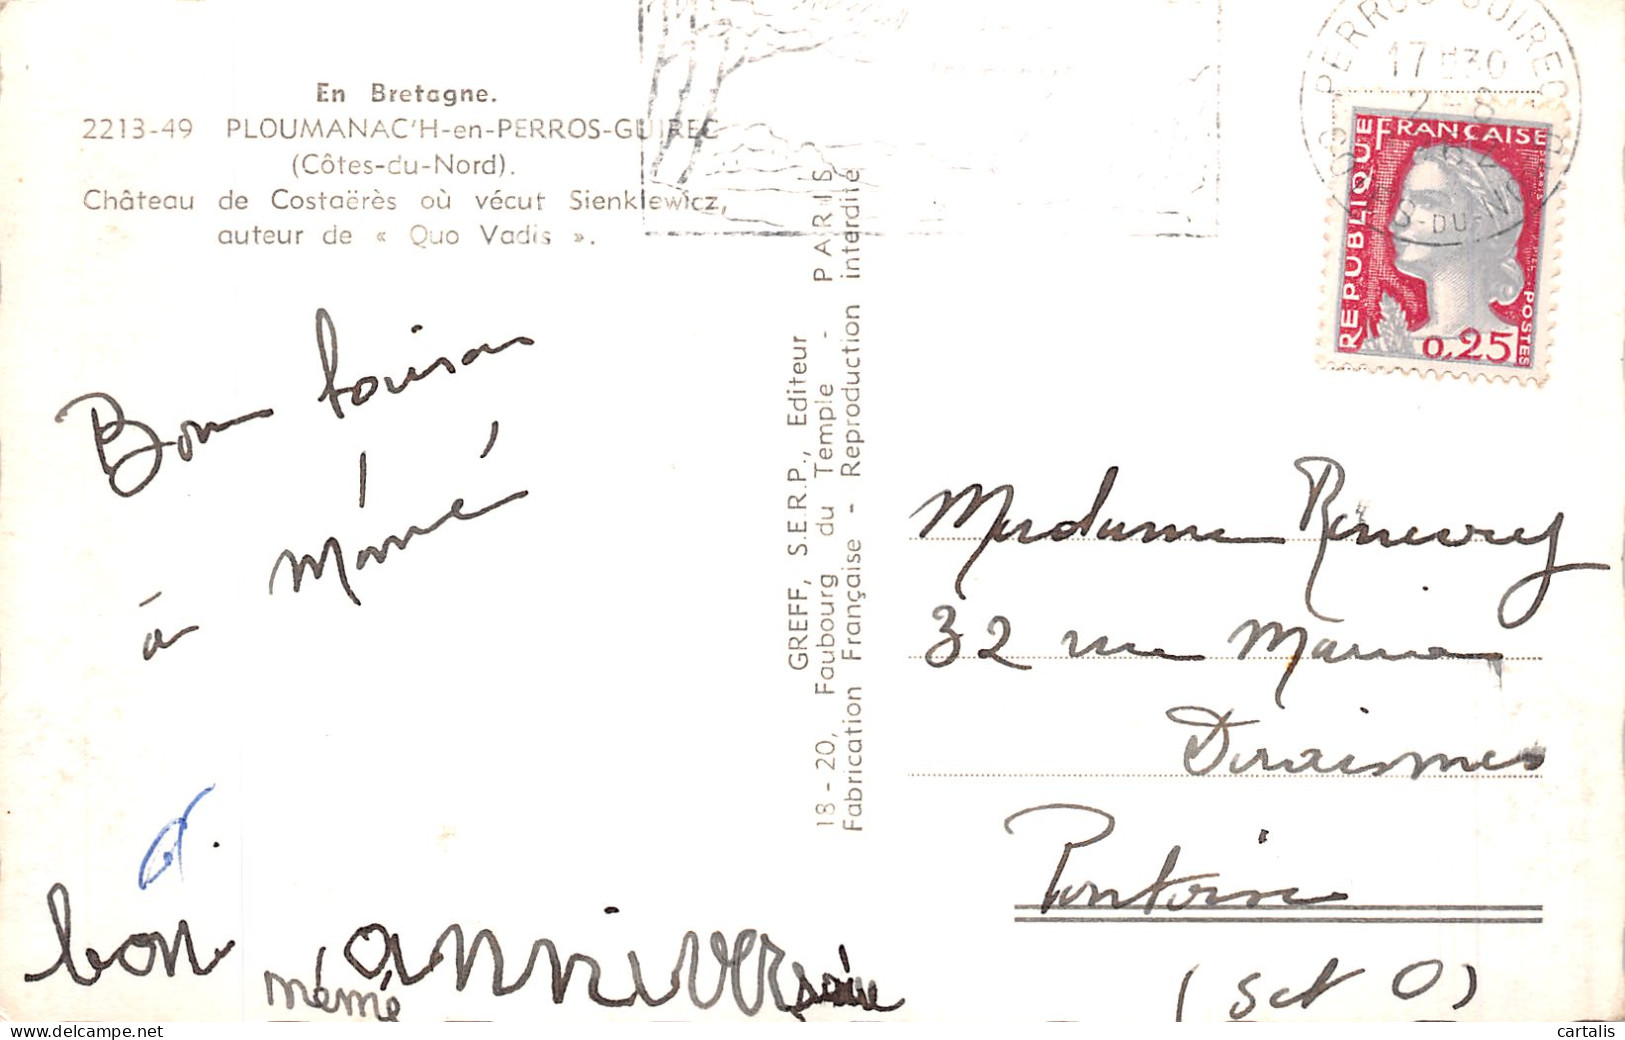 En Bretagne.
2213-49 PLOUMANAC'H-en-PERROS-GUIREC
(Côtes-du-Nord).
Château de Costaërès où vécut Sienkiewicz,
auteur de « Quo Vadis ».
Bons baisers
à Mémé
bon anniversaire
mémé
GREFF, S.E.R.P., Editeur
18-20, Faubourg du Temple - PARIS
Fabrication Française - Reproduction interdite
PERROS-GUIREC
17 H30
2 - 8
CÔTES-DU-NORD
REPUBLIQUE FRANÇAISE
POSTES
0,25
Madame Renevrey
32 rue Maria
Deraismes
Pontoise
(S et O)
cartalis